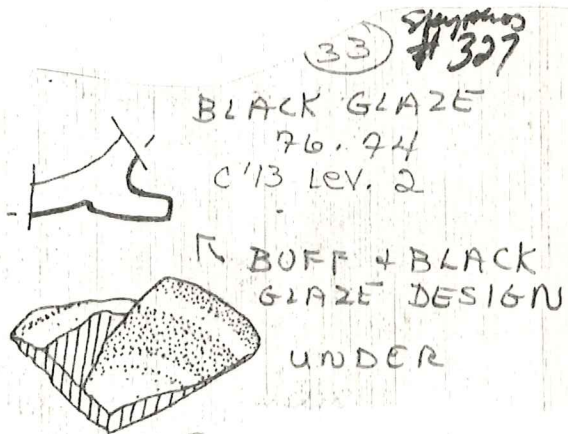 33
#327
BLACK GLAZE
76.74
C'13 LEV. 2
BUFF + BLACK
GLAZE DESIGN
UNDER